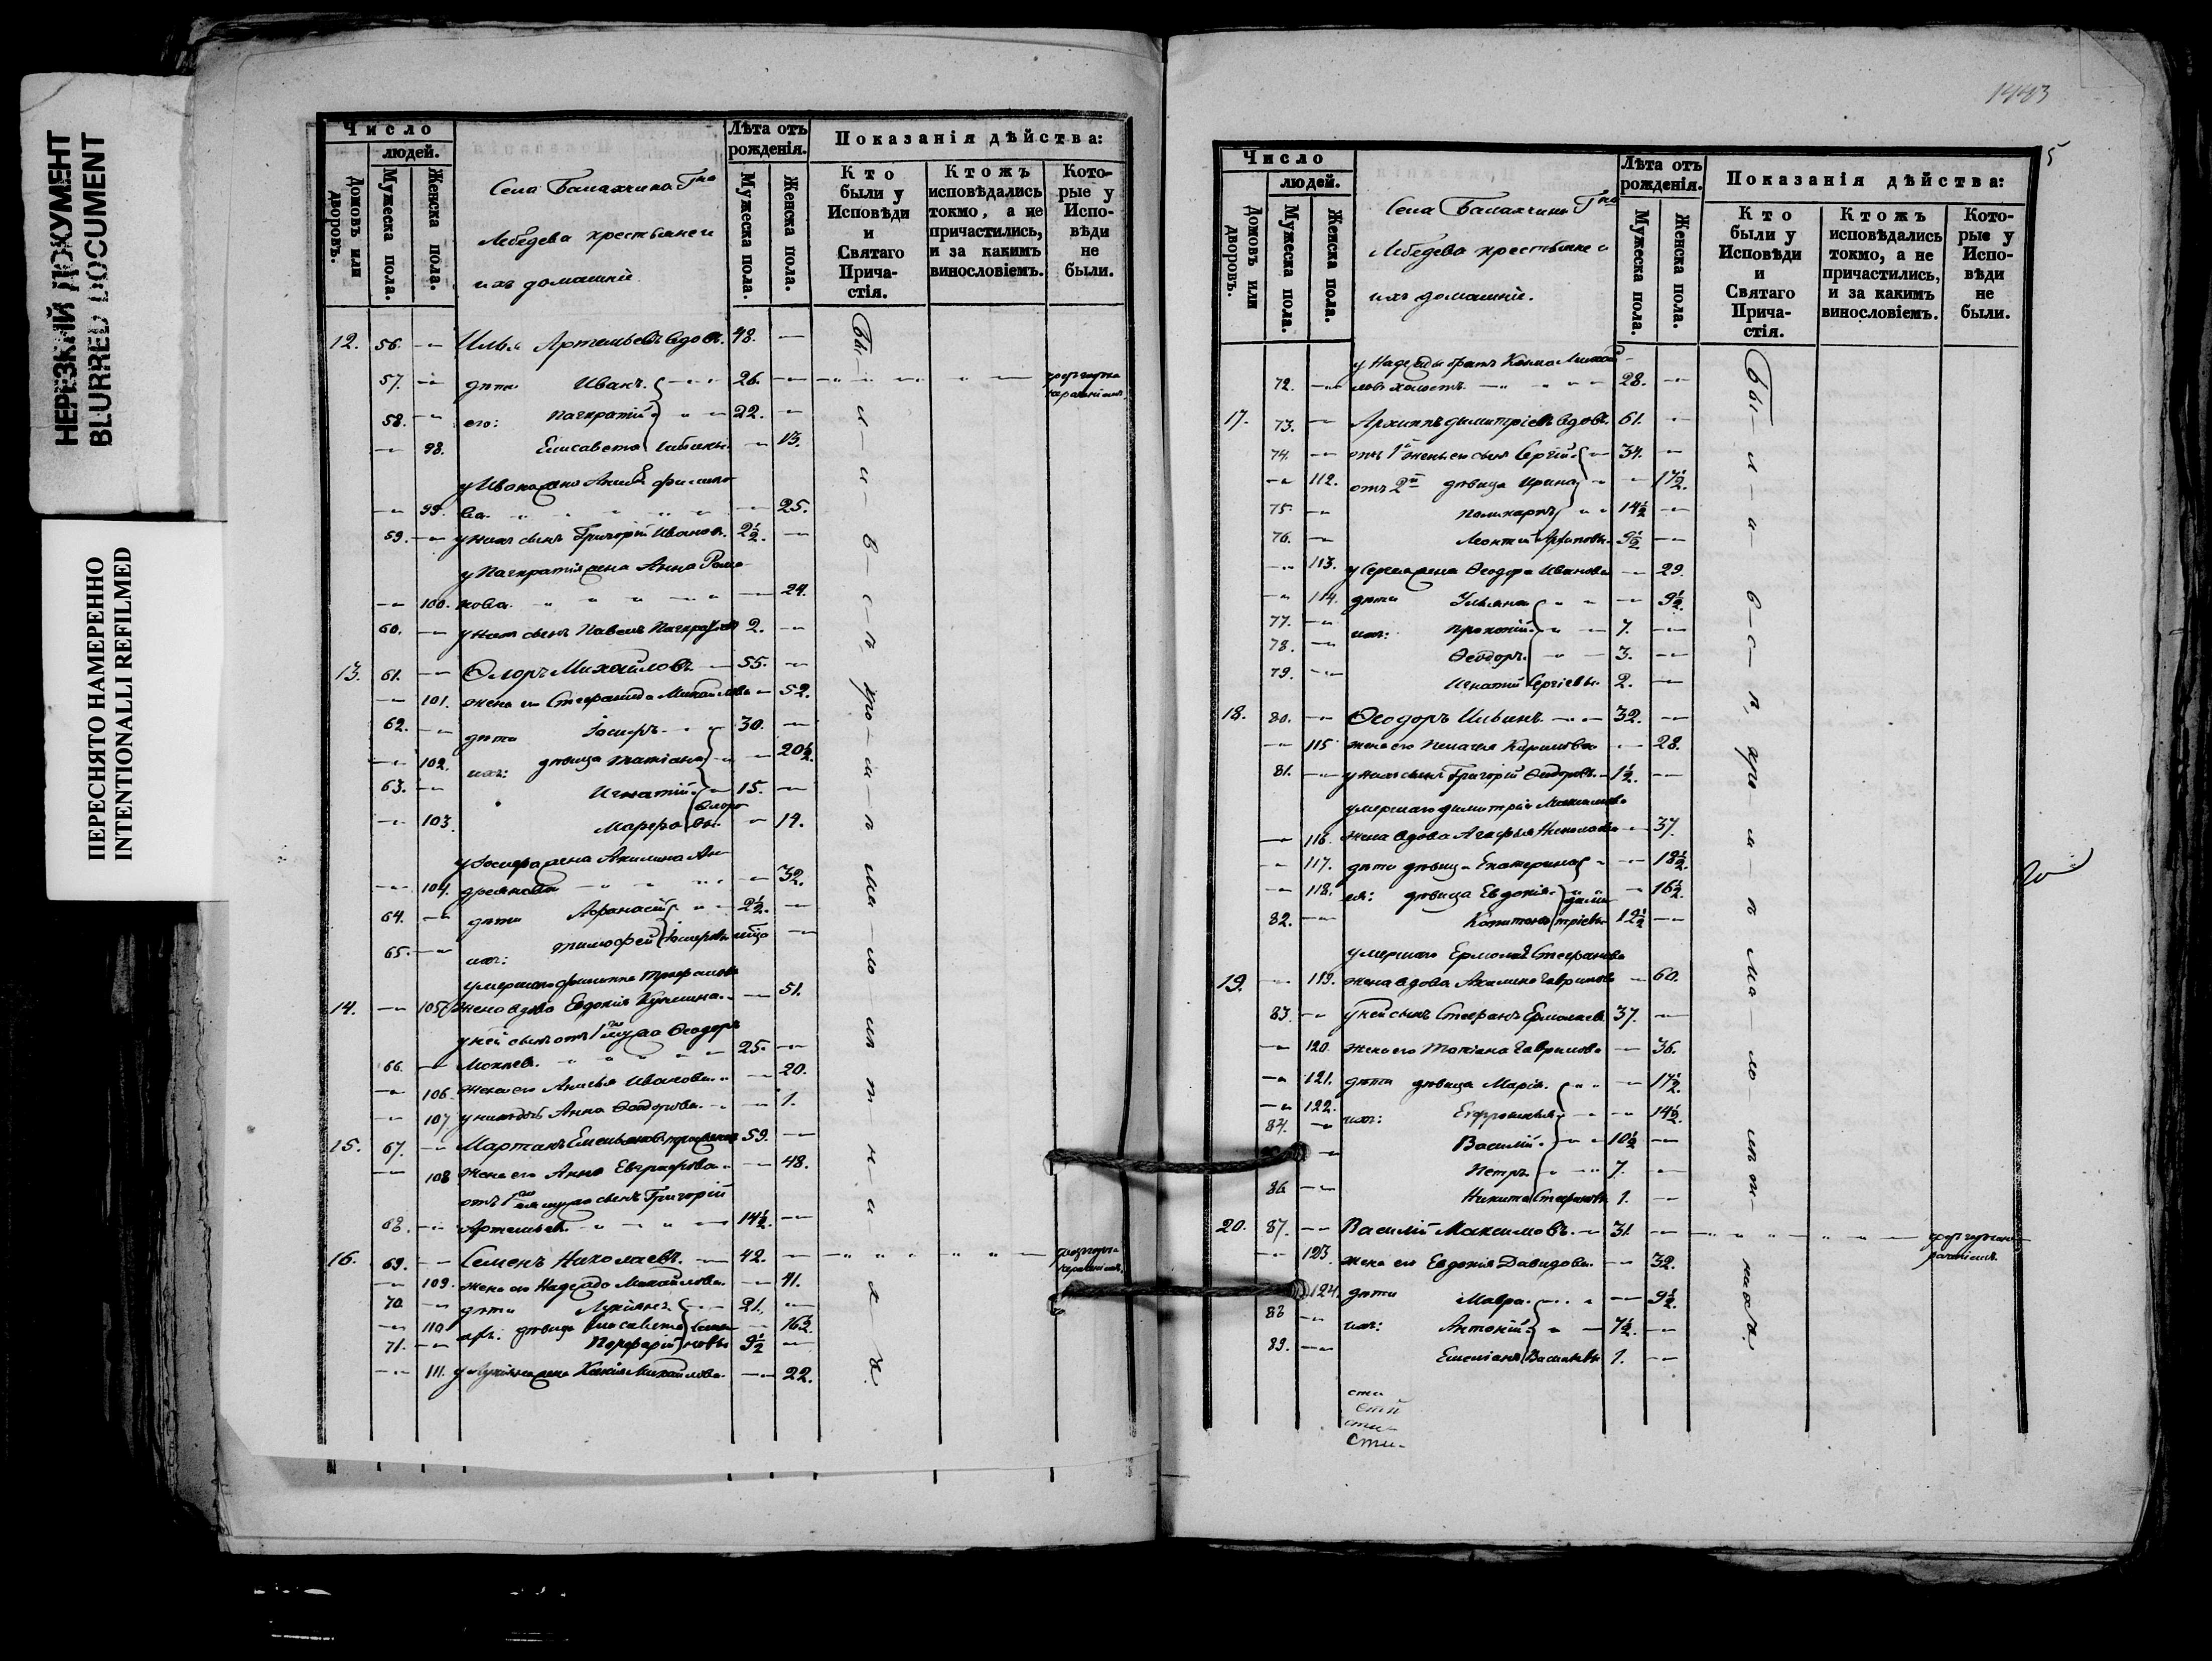 НЕРЕЗКИЙ ДОКУМЕНТ
BLURRED DOCUMENT
ПЕРЕСНЯТО НАМЕРЕННО
INTENTIONALLI REFILMED
Число
людей.
Домовъ или дворовъ.
Мужеска пола.
Женска пола.
Села Балахчина Гна
Лебедева крестьяне и
ихъ домашніе.
Лѣта отъ рожденія.
Мужеска пола.
Женска пола.
Показанія дѣйства:
Кто были у Исповѣди и Святаго Прича-стія.
Ктожъ исповѣдались токмо, а не причастились, и за какимъ винословіемъ.
Кото-рые у Испо-вѣди не были.
12. 56. Илья Артемьевъ вдовъ. 48.
57. дѣти Иванъ. 26.
58. его: Панкратій 22.
98. Елисавета Ильины. 13.
у Ивана жена
99. ва. 25.
59. у нихъ сынъ Григорій Ивановъ. 2½.
у Панкратія жена Анна Рома-
100. нова. 24.
60. у нихъ сынъ Павелъ Панкратіевъ 2.
13. 61. Флоръ Михайловъ 55.
101. жена его Стефанида Михайлова 52.
62. дѣти Іосифъ. 30.
102. ихъ: дѣвица Татіана 20½.
63. Игнатій. 15.
103. Марѳа Флоровы. 12.
у Іосифа жена Акилина Ан-
104. дреянова 32.
64. дѣти Афанасій 2½.
65. ихъ: Тимофей Іосифовы
умершаго Филиппа Трофимова
14. 105. жена вдова Евдокія Кузмина. 51.
у ней сынъ отъ 1го мужа Ѳеодоръ
66. 25.
106. жена его Анисья Иванова. 20.
107. у нихъ дочь Анна Ѳеодорова. 1.
15. 67. Мартинъ Емельяновъ 59.
108. жена его Анна Евграфова. 48.
отъ 1го ея мужа сынъ Григорій
68. Артемьевъ. 14½.
16. 69. Семенъ Николаевъ. 42.
109. жена его Надежда Михайлова. 41.
70. дѣти Лукіянъ. 21.
110. дѣвица Елисавета 16½.
71. Порфирій Семеновы 9½
111. у Лукіяна жена Ксенія Михайлова. 22.
Бы-ли-и-в-с-п, при-ли-
1443
5
Число
людей.
Домовъ или дворовъ.
Мужеска пола.
Женска пола.
Села Балахчина Гна
Лебедева крестьяне и
ихъ домашніе.
Лѣта отъ рожденія.
Мужеска пола.
Женска пола.
Показанія дѣйства:
Кто были у Исповѣди и Святаго Прича-стія.
Ктожъ исповѣдались токмо, а не причастились, и за какимъ винословіемъ.
Кото-рые у Испо-вѣди не были.
у Надежды братъ Козма Михай-
72. ловъ холостъ. 28.
17. 73. Архиппъ Димитріевъ вдовъ. 61.
74. отъ 1й жены его сынъ Сергій 34.
112. отъ 2й дѣвица Ирина 17½.
75. Поликарпъ 14½
76. Леонтій Архиповы. 9½
113. у Сергія жена Ѳеодора Иванова 29.
114. дѣти Ульяна 9½.
77. ихъ: Прокопій. 7.
78. Ѳеодоръ. 3.
79. Игнатій Сергіевы. 2.
18. 80. Ѳеодоръ Ильинъ 32.
115 жена его Пелагея Кирилова 28.
81. у нихъ сынъ Григорій Ѳеодоровъ. 1½.
умершаго Димитрія Максимова
116. жена вдова Агафья Николаева 37.
117. дѣти дѣвица Екатерина 18½.
118. ея: дѣвица Евдокія. 16½
82. Капитонъ Димитріевы 12½
умершаго Ермолая Стефанова
19. 119. жена вдова Акилина Гаврилова 60.
83. у ней сынъ Стефанъ Ермолаевъ 37.
120. жена его Татіана Гаврилова 36.
121. дѣти дѣвица Марія. 17½.
122. ихъ: Евфросинья 14½.
84. Василій. 10½
Петръ 7.
86. Никита Стефановы 1.
20. 87. Василій Максимовъ. 31.
123. жена его Евдокія Давидова. 32.
124. дѣти Мавра. 9½.
88 ихъ: Антоній. 7½.
89. Емеліанъ Васильевы 1.
сти
стй
сти-
Сти-